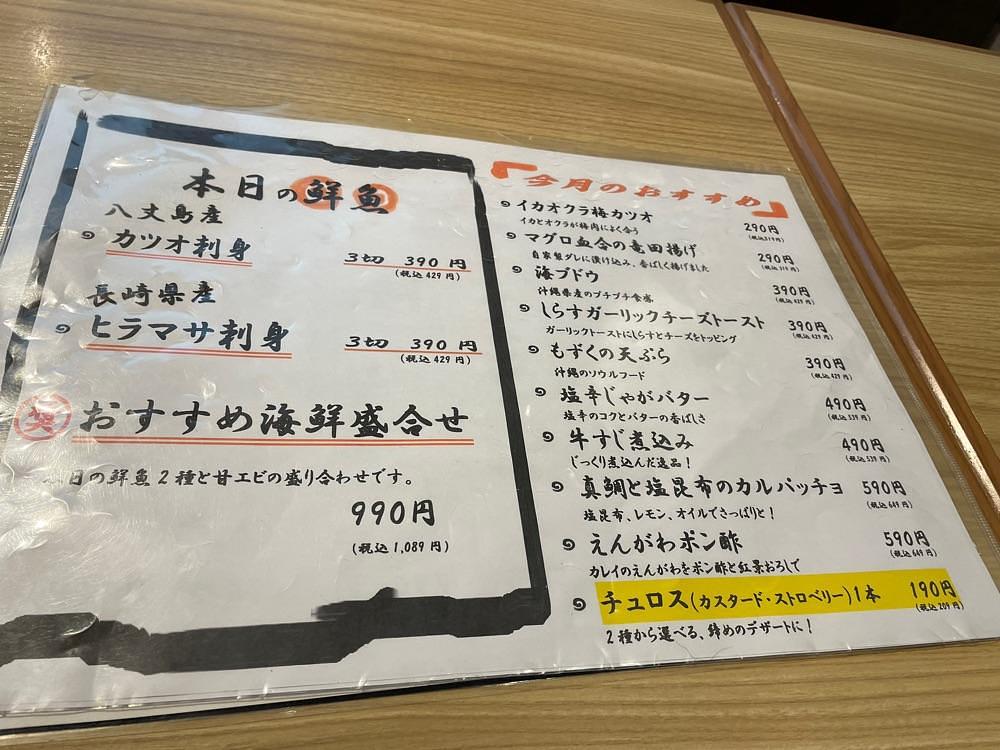 本日の鮮魚
八丈島産
カツオ刺身
3切 390円
(税込429円)
長崎県産
ヒラマサ刺身
3切 390円
(税込429円)
おすすめ海鮮盛合せ
日の鮮魚2種と甘エビの盛り合わせです。
990円
(税込1,089円)
「今月のおすすめ」
イカオクラ梅カツオ 290円
イカとオクラが梅肉によく合う (税込319円)
マグロ血合の竜田揚げ 290円
自家製ダレに漬け込み、香ばしく揚げました (税込319円)
海ブドウ 390円
沖縄県産のプチプチ食感 (税込429円)
しらすガーリックチーズトースト 390円
ガーリックトーストにしらすとチーズをトッピング (税込429円)
もずくの天ぷら 390円
沖縄のソウルフード (税込429円)
塩辛じゃがバター 490円
塩辛のコクとバターの香ばしさ (税込539円)
牛すじ煮込み 490円
じっくり煮込んだ逸品! (税込539円)
真鯛と塩昆布のカルパッチョ 590円
塩昆布、レモン、オイルでさっぱりと! (税込649円)
えんがわポン酢 590円
カレイのえんがわをポン酢と紅葉おろしで (税込649円)
チュロス(カスタード・ストロベリー)1本 190円
(税込209円)
2種から選べる、締めのデザートに!